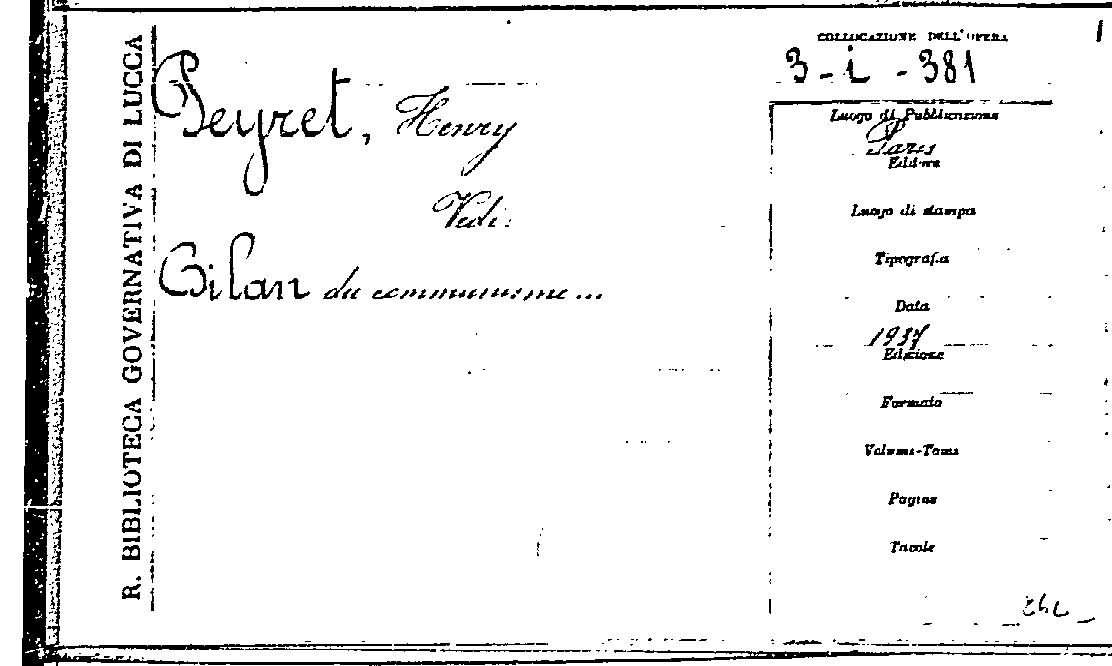 R. BIBLIOTECA GOVERNATIVA DI LUCCA
Peyret, Henry
Vedi:
Bilan du communisme...
COLLOCAZIONE DELL'OPERA
3-i-381
Luogo di Pubblicazione
Paris
Editore
Luogo di stampa
Tipografia
Data
1937
Edizione
Formato
Volume-Tomo
Pagine
Tavole